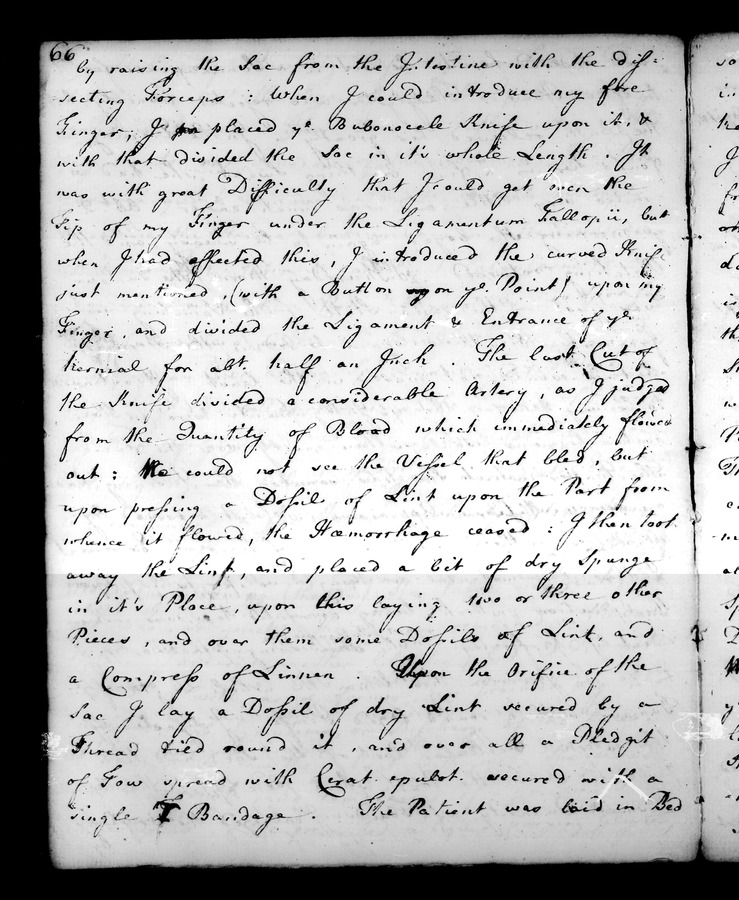 66
by raising the Sac from the Intestine with the dis=
secting Forceps : When I could introduce my fore
Finger, I placed ye. Bubonocele Knife upon it, &
with that divided the Sac in it's whole Length . It
was with great Difficulty that I could get even the
Tip of my Finger under the Ligamentum Fallopii, but
when I had effected this, I introduced the curved Knife
just mentioned, (with a Button on ye. Point) upon my
Finger, and divided the Ligament & Entrance of ye
hernial for abt. half an Inch . The last Cut of
the Knife divided a considerable Artery, as I judged
from the Quantity of Blood which immediately flowed
out : We could not see the Vessel that bled, but
upon pressing a Dossil of Lint upon the Part from
whence it flowed, the Hæmorrhage ceased : I then took
away the Lint, and placed a bit of dry Spunge
in it's Place, upon this laying two or three other
Pieces, and over them some Dossils of Lint, and
a Compress of Linnen . Upon the Orifice of the
Sac I lay a Dossil of dry Lint secured by a
Thread tied round it, and over all a Pledgit
of Tow spread with Cerat. epulot. secured with a
single T Bandage . The Patient was laid in Bed